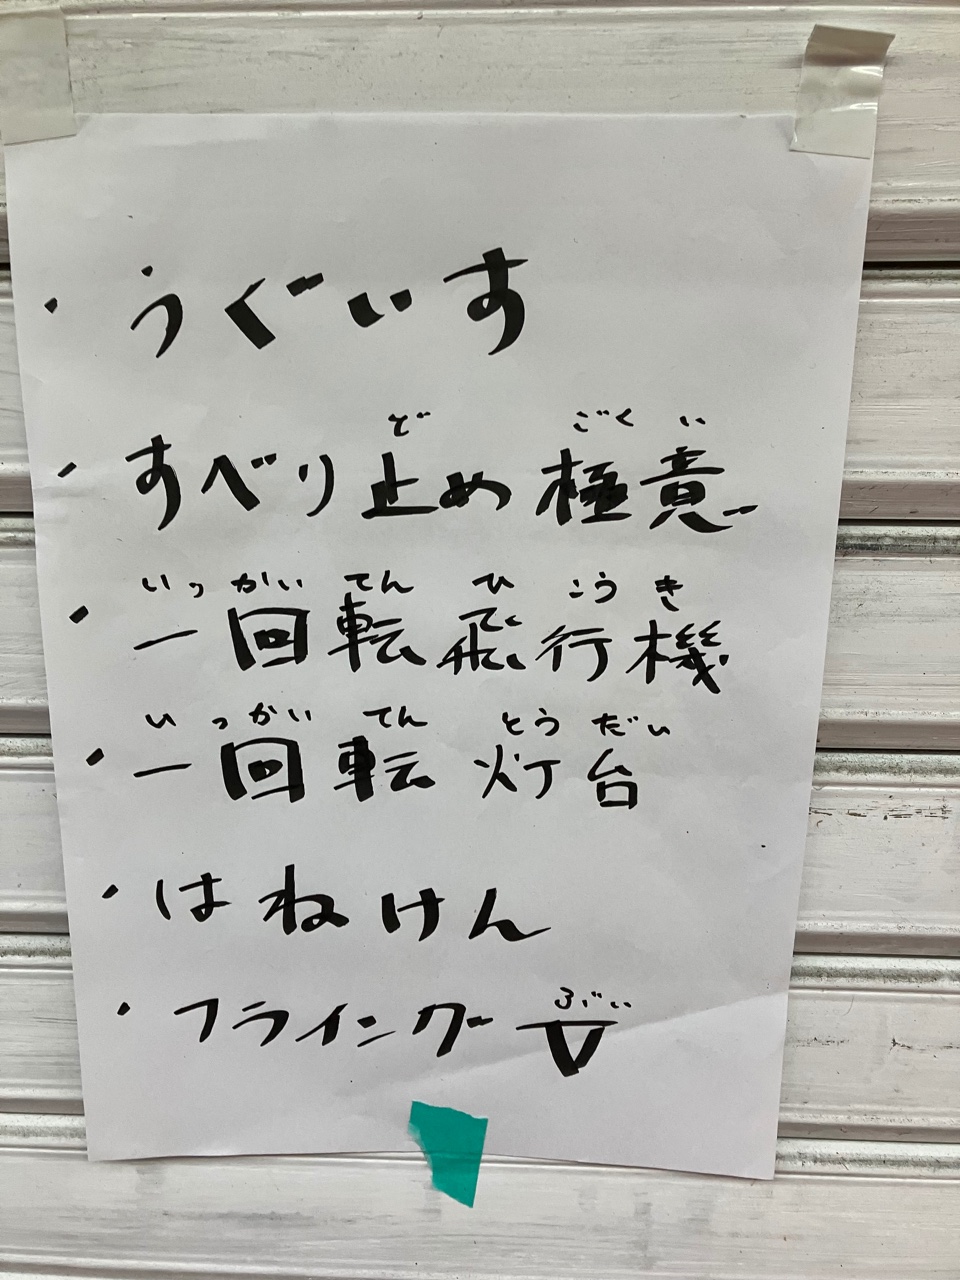 ・うぐいす
ど ごくい
・すべり止め極意
いっかいてん ひこうき
・一回転飛行機
いっかいてん とうだい
・一回転灯台
・はねけん
ぶい
・フライングV